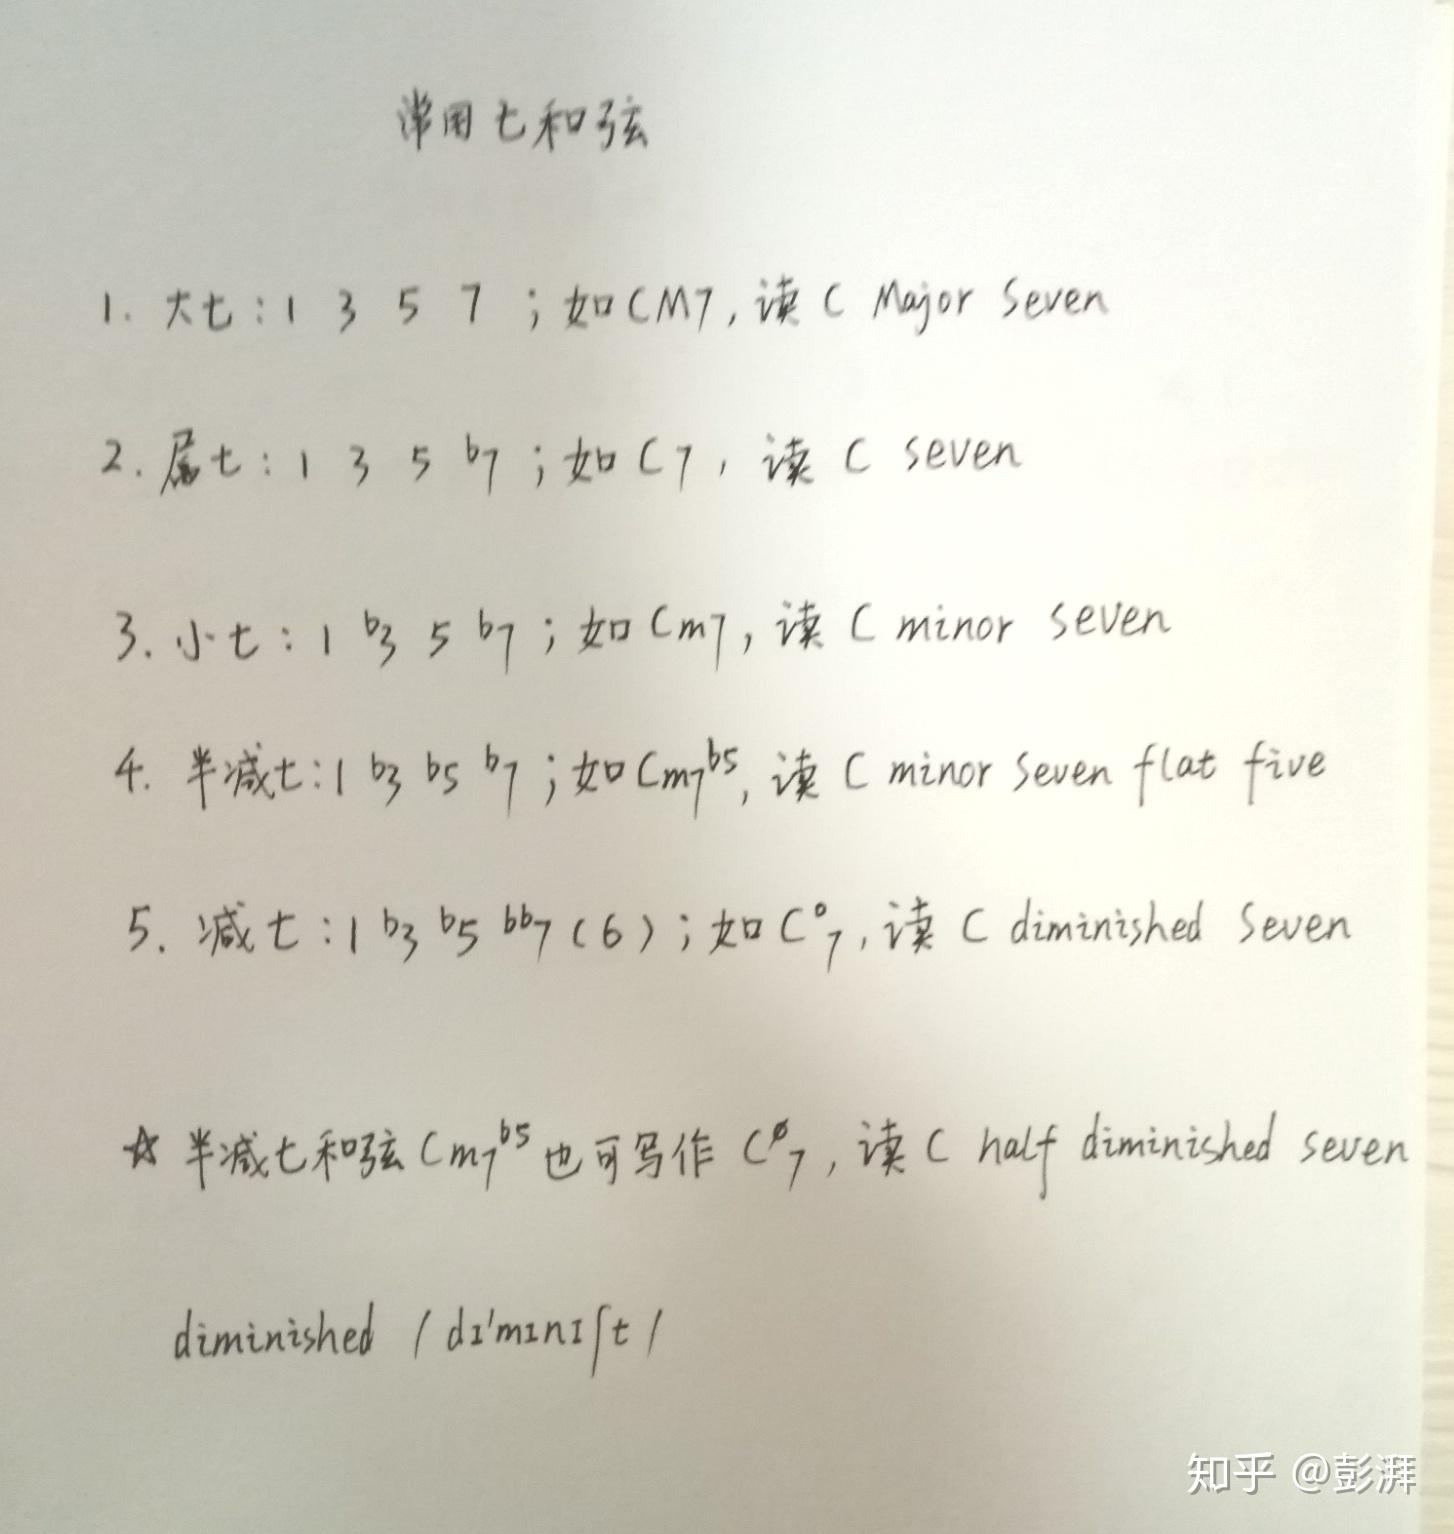 常用七和弦
1. 大七：1 3 5 7 ；如CM7，读 C Major Seven
2. 属七：1 3 5 b7 ；如C7，读 C seven
3. 小七：1 b3 5 b7 ；如Cm7，读 C minor seven
4. 半减七：1 b3 b5 b7 ；如Cm7b5，读 C minor seven flat five
5. 减七：1 b3 b5 bb7 (6) ；如C°7，读 C diminished Seven
☆ 半减七和弦Cm7b5也可写作 Cø7，读 C half diminished seven
diminished /dɪ'mɪnɪʃt/
知乎 @彭湃